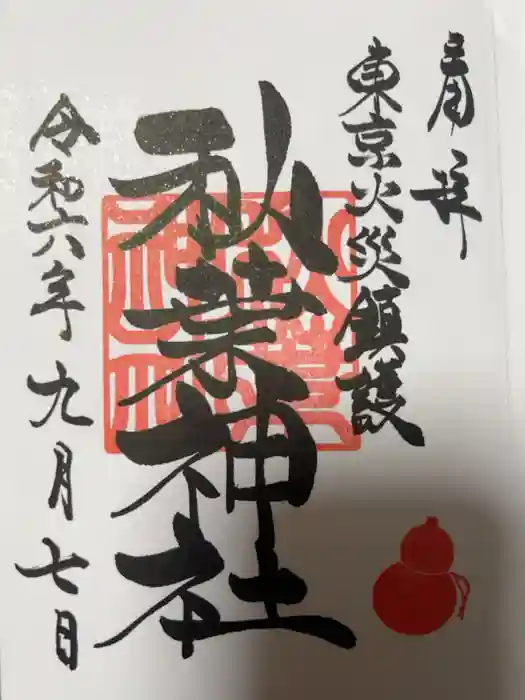 奉拝
東京火災鎮護
秋葉神社
令和六年九月七日